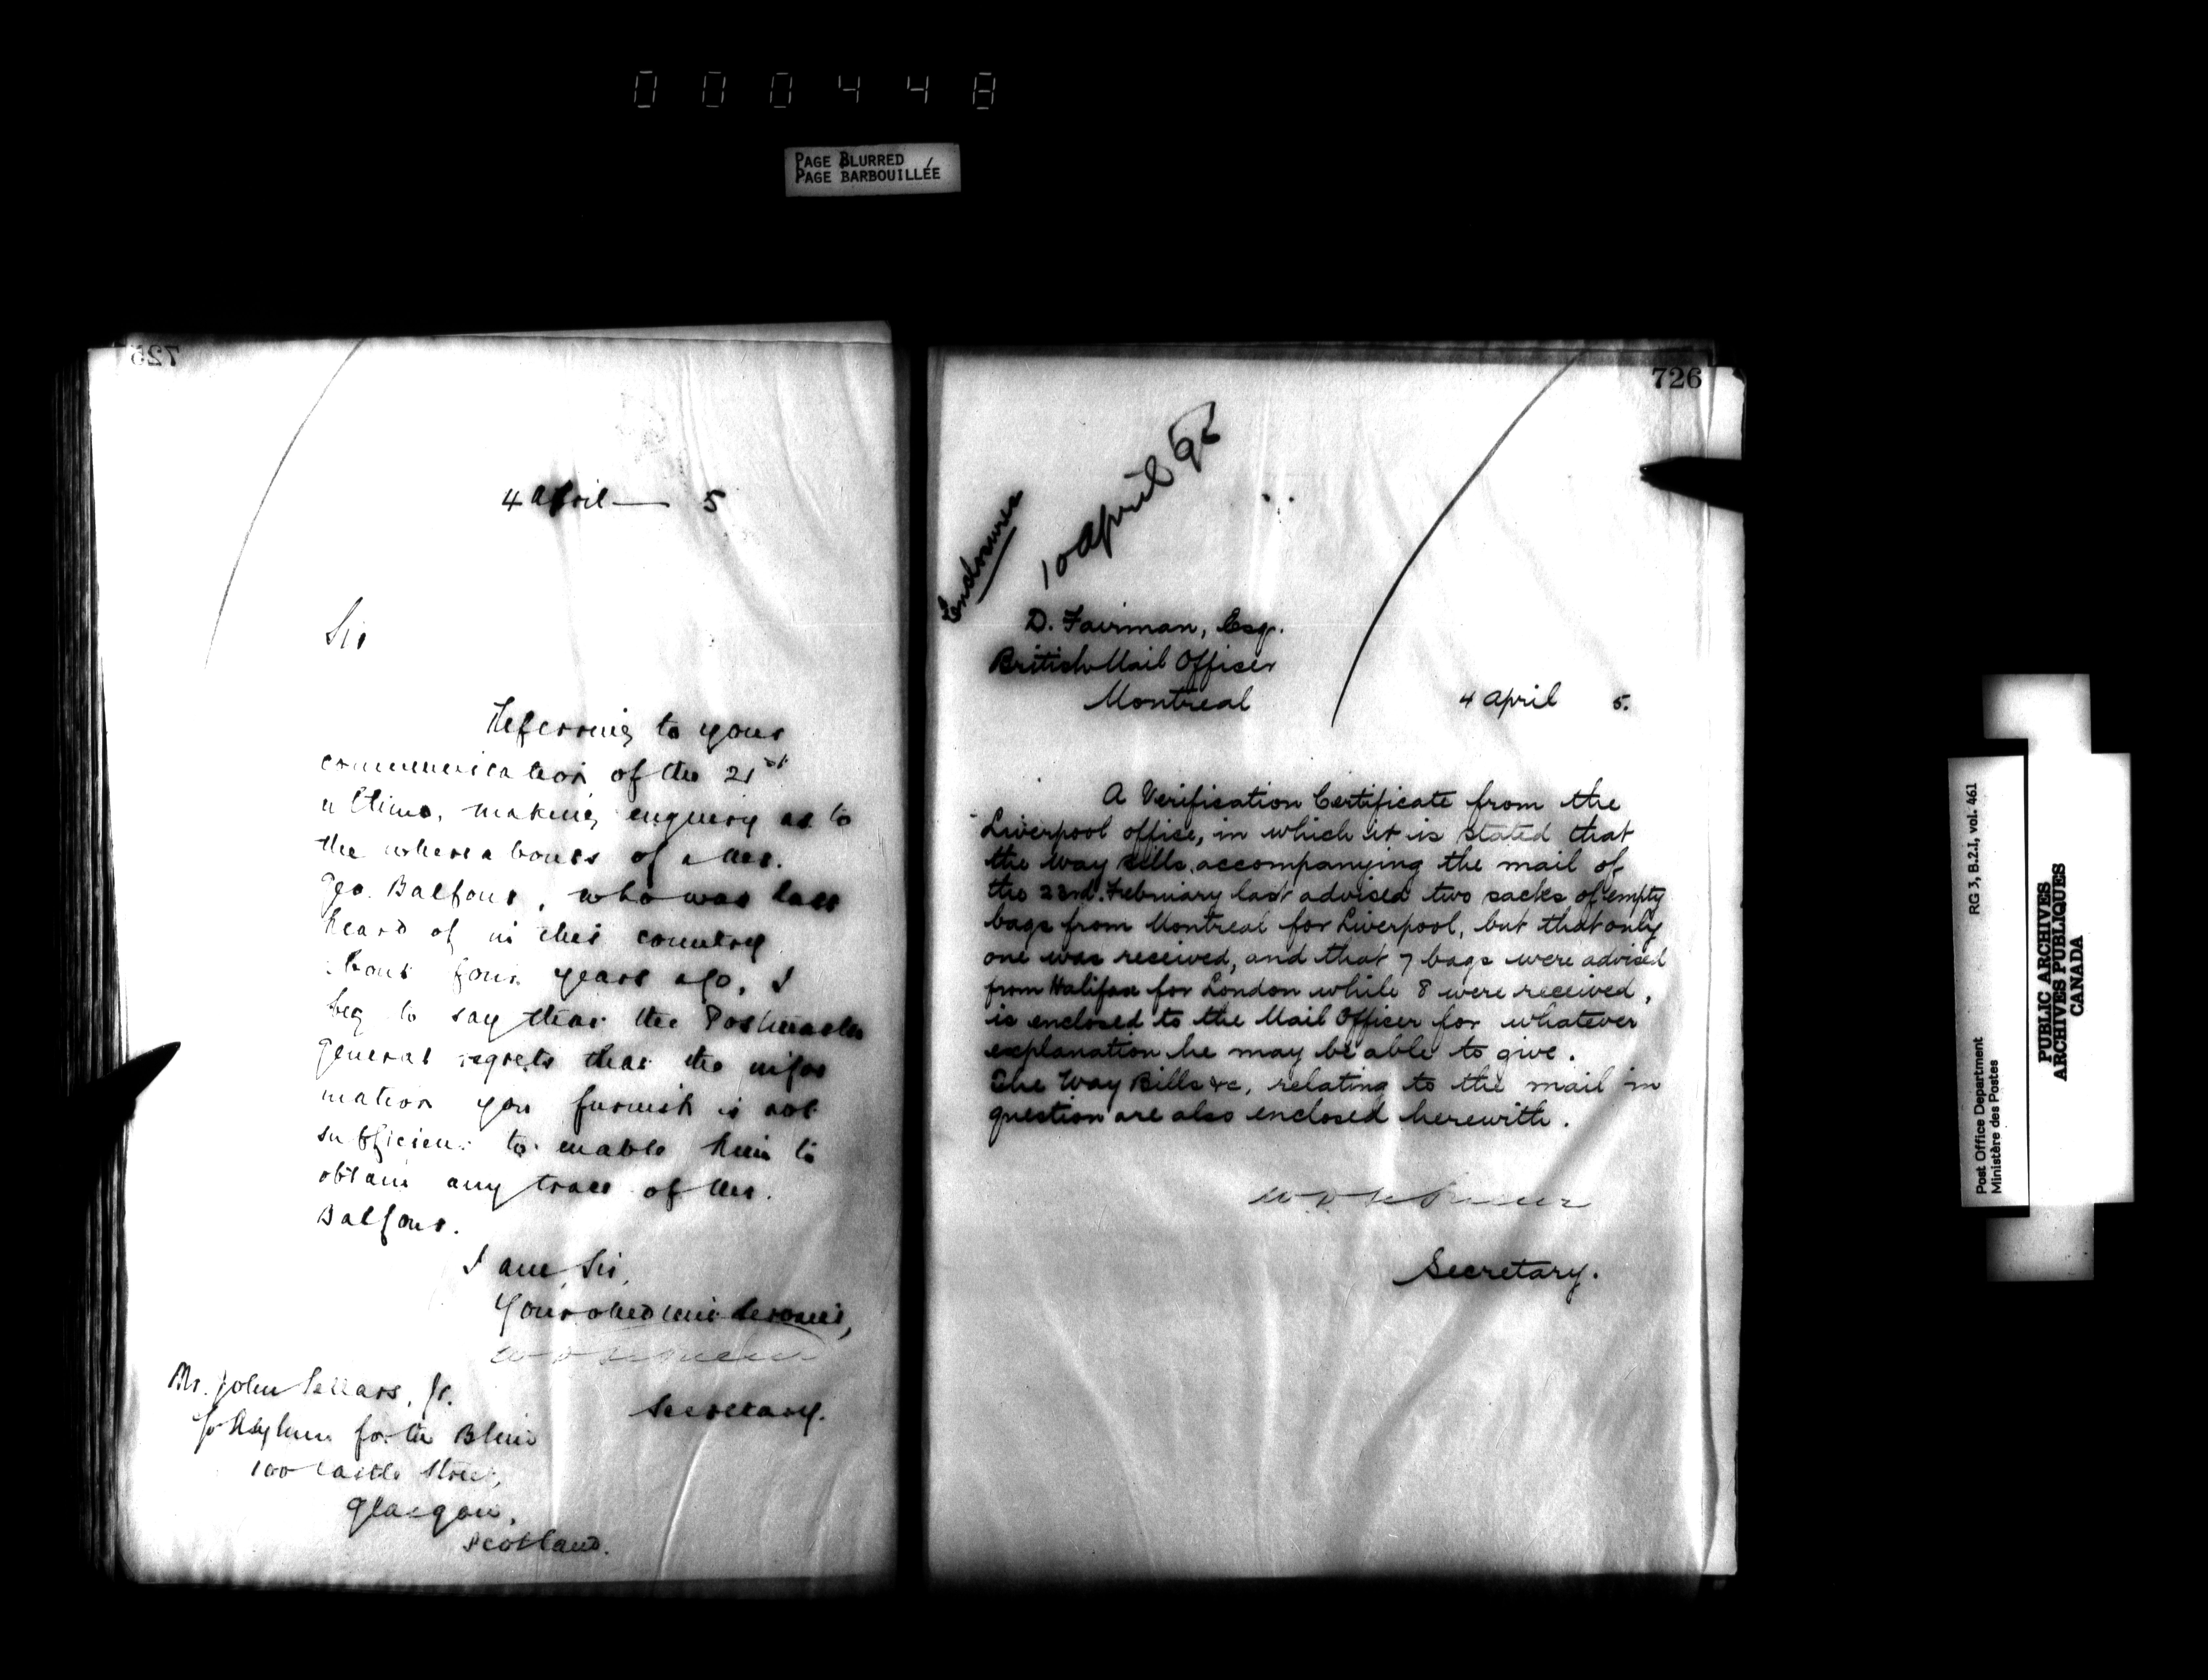 000448
PAGE BLURRED
PAGE BARBOUILLÉE
725
4 April — 5
Sir
Referring to your
communication of the 21st
ultimo, making enquiry as to
the whereabouts of a Mr.
Geo. Balfour, who was last
heard of in this country
about four years ago, I
beg to say that the Postmaster
General regrets that the infor
mation you furnish is not
sufficient to enable him to
obtain any trace of Mr.
Balfour.
I am, Sir,
Your obedient Servant,
Secretary.
Mr. John Sellars, Jr.
c/o Asylum for the Blind
100 Castle Street,
Glasgow,
Scotland.
726
Endosures
10 April 95
D. Fairman, Esq.
British Mail Officer
Montreal
4 April 5.
A Verification Certificate from the
Liverpool office, in which it is stated that
the Way Bills accompanying the mail of
the 23rd. February last advised two sacks of empty
bags from Montreal for Liverpool, but that only
one was received, and that 7 bags were advised
from Halifax for London while 8 were received,
is enclosed to the Mail Officer for whatever
explanation he may be able to give.
The Way Bills &c, relating to the mail in
question are also enclosed herewith.
Secretary.
RG 3, B.2.I, vol. 461
Post Office Department
Ministère des Postes
PUBLIC ARCHIVES
ARCHIVES PUBLIQUES
CANADA